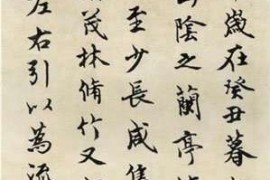 歲在癸丑暮
山陰之蘭亭
至少長咸集
茂林脩竹又
左右引以為流